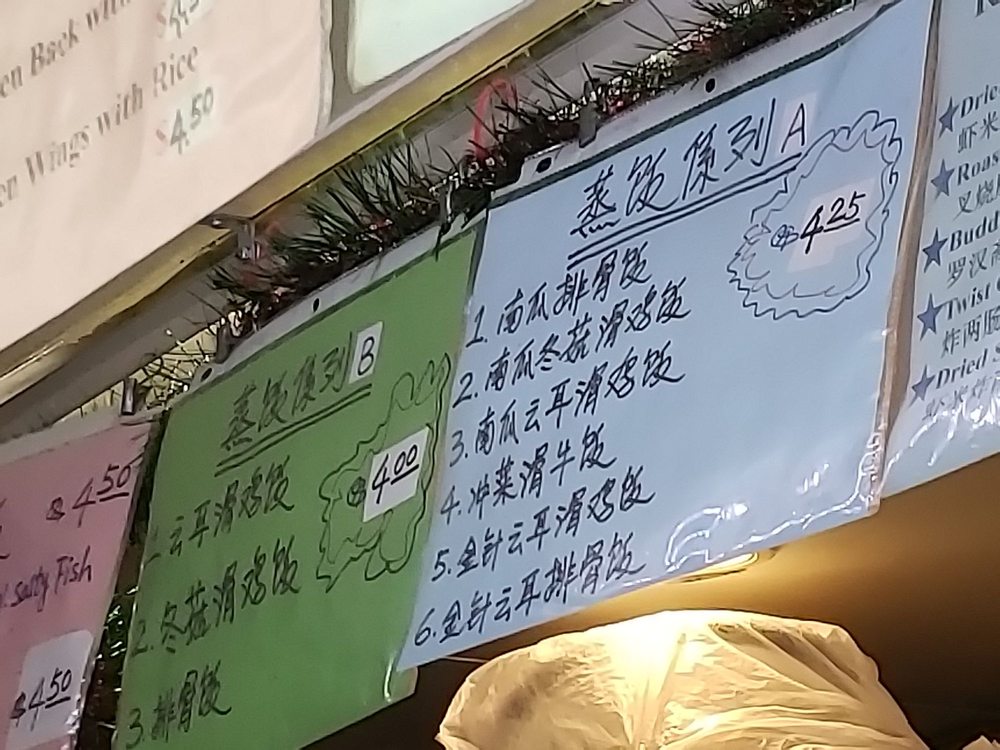 en Back with
$4.5
en Wings with Rice
$4.50
$4.50
Salty Fish
$4.50
蒸饭係列B
$4.00
1.云耳滑鸡饭
2.冬菇滑鸡饭
3.排骨饭
蒸饭係列A
$4.25
1.南瓜排骨饭
2.南瓜冬菇滑鸡饭
3.南瓜云耳滑鸡饭
4.冲菜滑牛饭
5.金针云耳滑鸡饭
6.金针云耳排骨饭
★Drie
虾米
★Roas
叉烧
★Budd
罗汉
★Twist
炸两肠
★Dried S